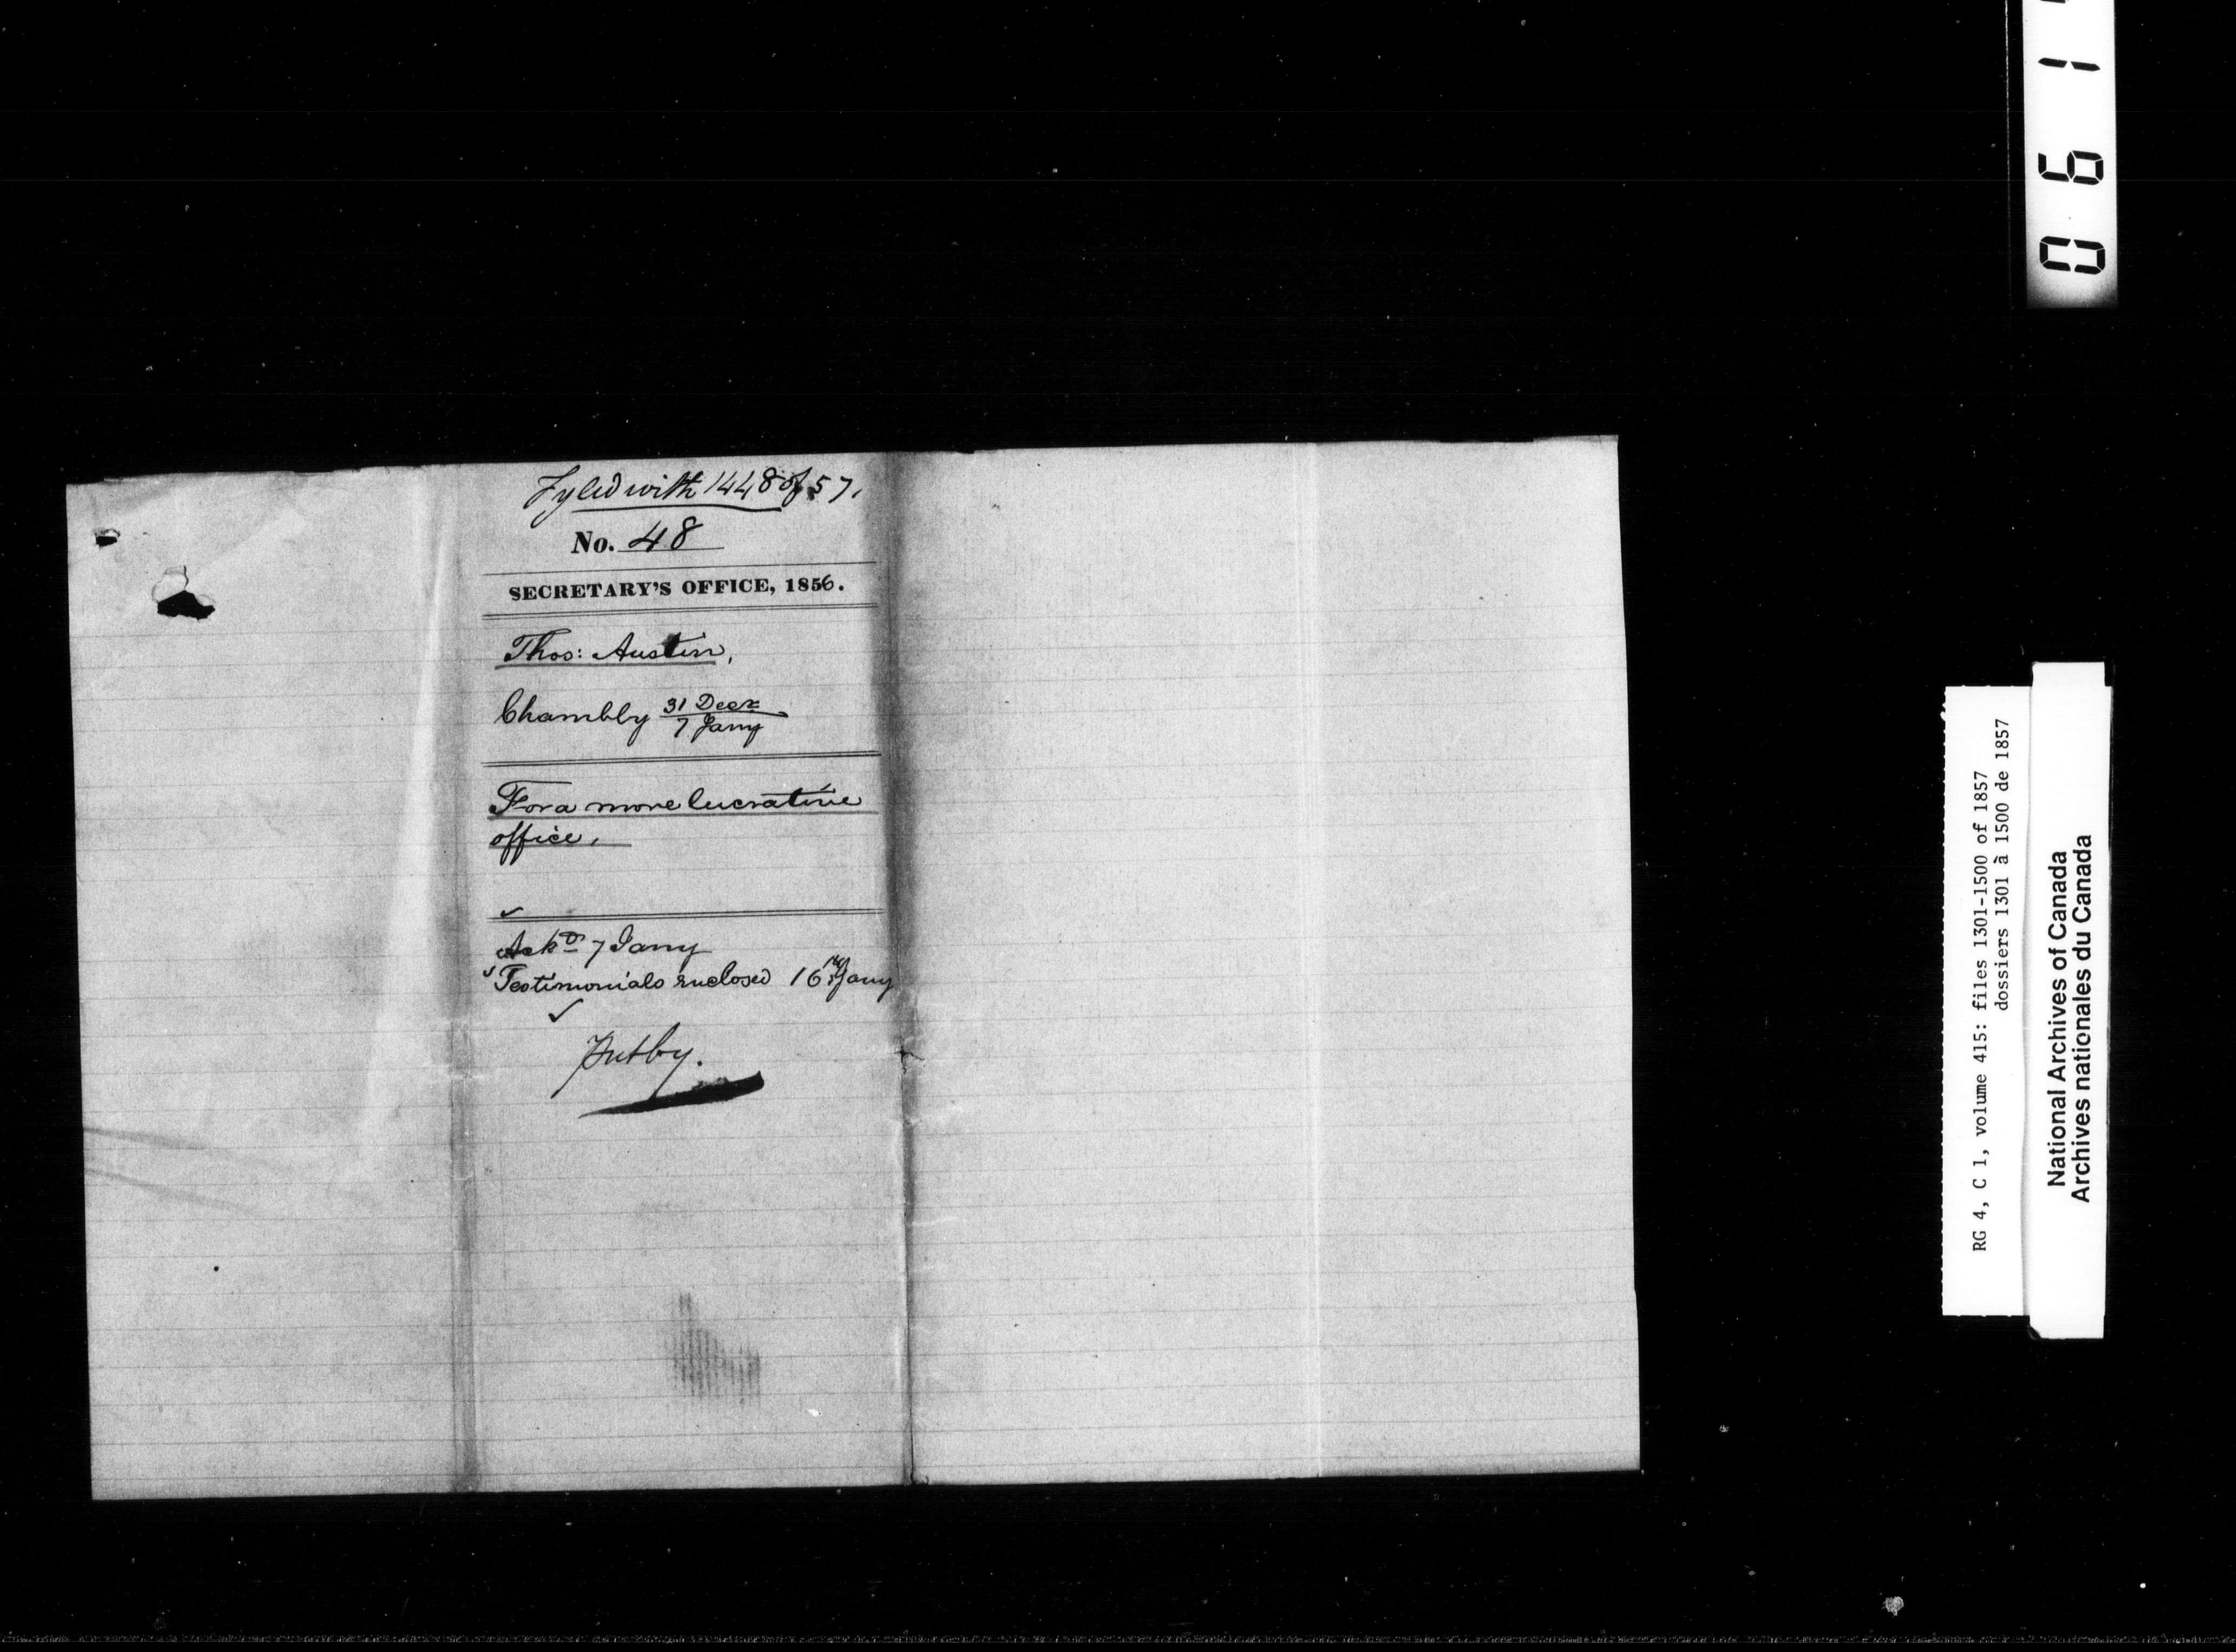 Fyled with 1448 of 57.
No. 48
SECRETARY'S OFFICE, 1856.
Thos: Austin,
Chambly 31 Decr
7 Jany
For a more lucrative
office.
Ackd 7 Jany
Testimonials enclosed 16th Jany
Putby.
061
RG 4, C 1, volume 415: files 1301-1500 of 1857
dossiers 1301 à 1500 de 1857
National Archives of Canada
Archives nationales du Canada